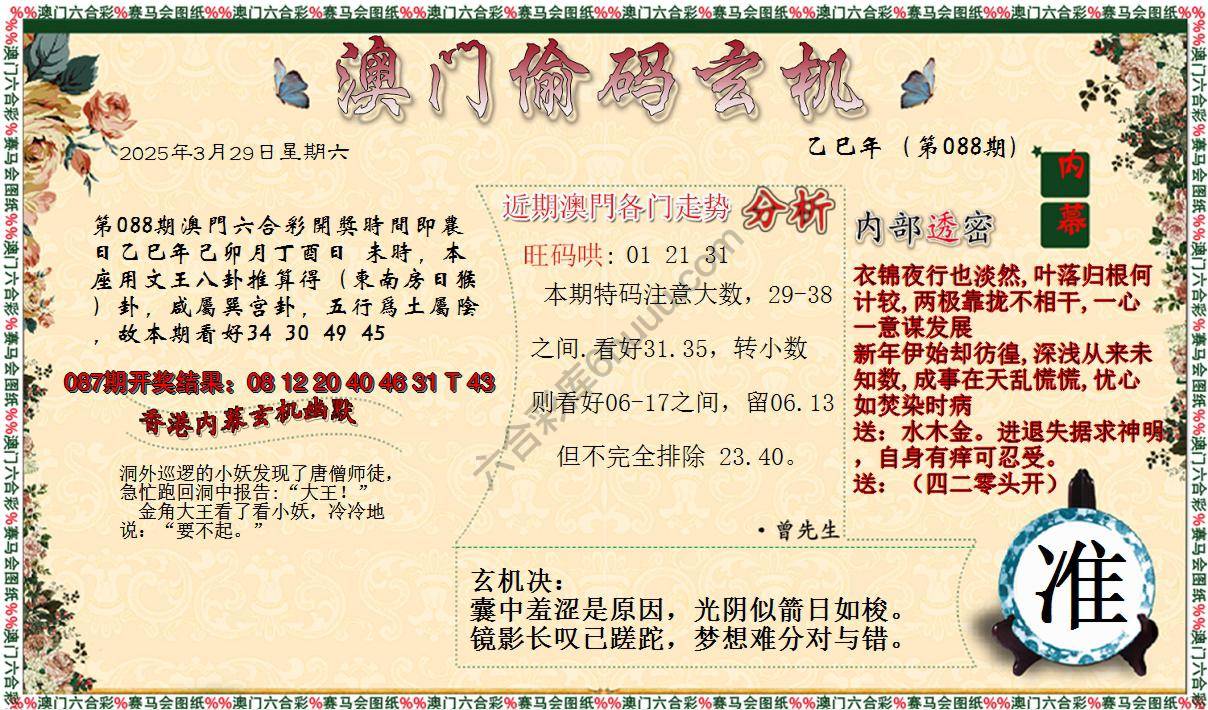 %%澳门六合彩%赛马会图纸%%澳门六合彩%赛马会图纸%%澳门六合彩%赛马会图纸%%澳门六合彩%赛马会图纸%%澳门六合彩%赛马会图纸%%澳门六合彩%赛马会图纸%%
澳门偷码玄机
2025年3月29日星期六
乙巳年（第088期）
内幕
第088期澳門六合彩開獎時間即農
日乙巳年己卯月丁酉日 未時，本
座用文王八卦推算得（東南房日猴
）卦，咸屬巽宮卦，五行爲土屬陰
，故本期看好34 30 49 45
087期开奖结果：08 12 20 40 46 31 T 43
香港内幕玄机幽默
洞外巡逻的小妖发现了唐僧师徒，
急忙跑回洞中报告:“大王！”
金角大王看了看小妖，冷冷地
说：“要不起。”
近期澳門各门走势 分析
旺码哄: 01 21 31
本期特码注意大数，29-38
之间.看好31.35，转小数
则看好06-17之间，留06.13
但不完全排除 23.40。
·曾先生
内部透密
衣锦夜行也淡然,叶落归根何
计较,两极靠拢不相干,一心
一意谋发展
新年伊始却彷徨,深浅从来未
知数,成事在天乱慌慌,忧心
如焚染时病
送：水木金。进退失据求神明
，自身有痒可忍受。
送：（四二零头开）
玄机决：
囊中羞涩是原因，光阴似箭日如梭。
镜影长叹已蹉跎，梦想难分对与错。
准